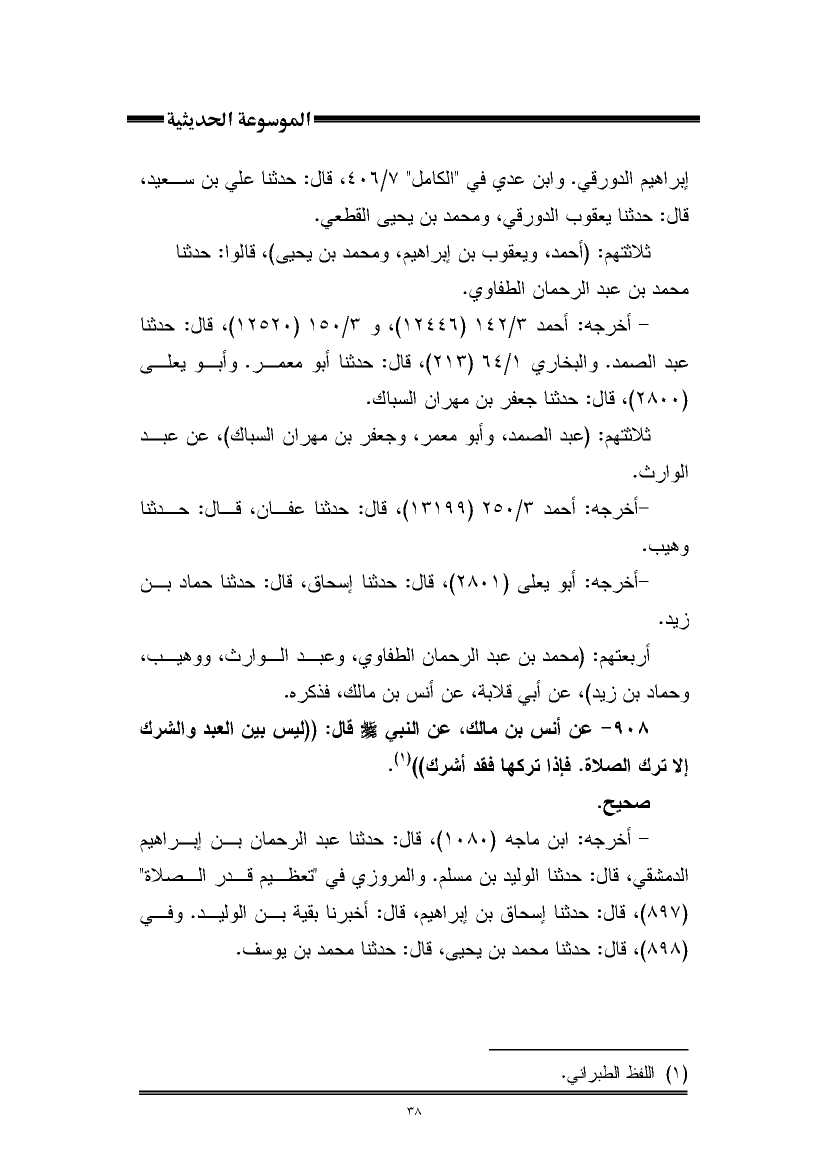 الموسوعة الحديثية
إبراهيم الدورقي. وابن عدي في "الكامل" ٤٠٦/٧، قال: حدثنا علي بن سعيد،
قال: حدثنا يعقوب الدورقي، ومحمد بن يحيى القطعي.
ثلاثتهم: (أحمد، ويعقوب بن إبراهيم، ومحمد بن يحيى)، قالوا: حدثنا
محمد بن عبد الرحمان الطفاوي.
- أخرجه: أحمد ١٤٢/٣ (١٢٤٤٦)، و ١٥٠/٣ (١٢٥٢٠)، قال: حدثنا
عبد الصمد. والبخاري ٦٤/١ (٢١٣)، قال: حدثنا أبو معمر. وأبو يعلى
(٢٨٠٠)، قال: حدثنا جعفر بن مهران السباك.
ثلاثتهم: (عبد الصمد، وأبو معمر، وجعفر بن مهران السباك)، عن عبد
الوارث.
-أخرجه: أحمد ٢٥٠/٣ (١٣١٩٩)، قال: حدثنا عفان، قال: حدثنا
وهيب.
-أخرجه: أبو يعلى (٢٨٠١)، قال: حدثنا إسحاق، قال: حدثنا حماد بن
زيد.
أربعتهم: (محمد بن عبد الرحمان الطفاوي، وعبد الوارث، ووهيب،
وحماد بن زيد)، عن أبي قلابة، عن أنس بن مالك، فذكره.
٩٠٨- عن أنس بن مالك، عن النبي ﷺ قال: ((ليس بين العبد والشرك
إلا ترك الصلاة. فإذا تركها فقد أشرك))(١).
صحيح.
- أخرجه: ابن ماجه (١٠٨٠)، قال: حدثنا عبد الرحمان بن إبراهيم
الدمشقي، قال: حدثنا الوليد بن مسلم. والمروزي في "تعظيم قدر الصلاة"
(٨٩٧)، قال: حدثنا إسحاق بن إبراهيم، قال: أخبرنا بقية بن الوليد. وفي
(٨٩٨)، قال: حدثنا محمد بن يحيى، قال: حدثنا محمد بن يوسف.
(١) اللفظ الطبراني.
٣٨